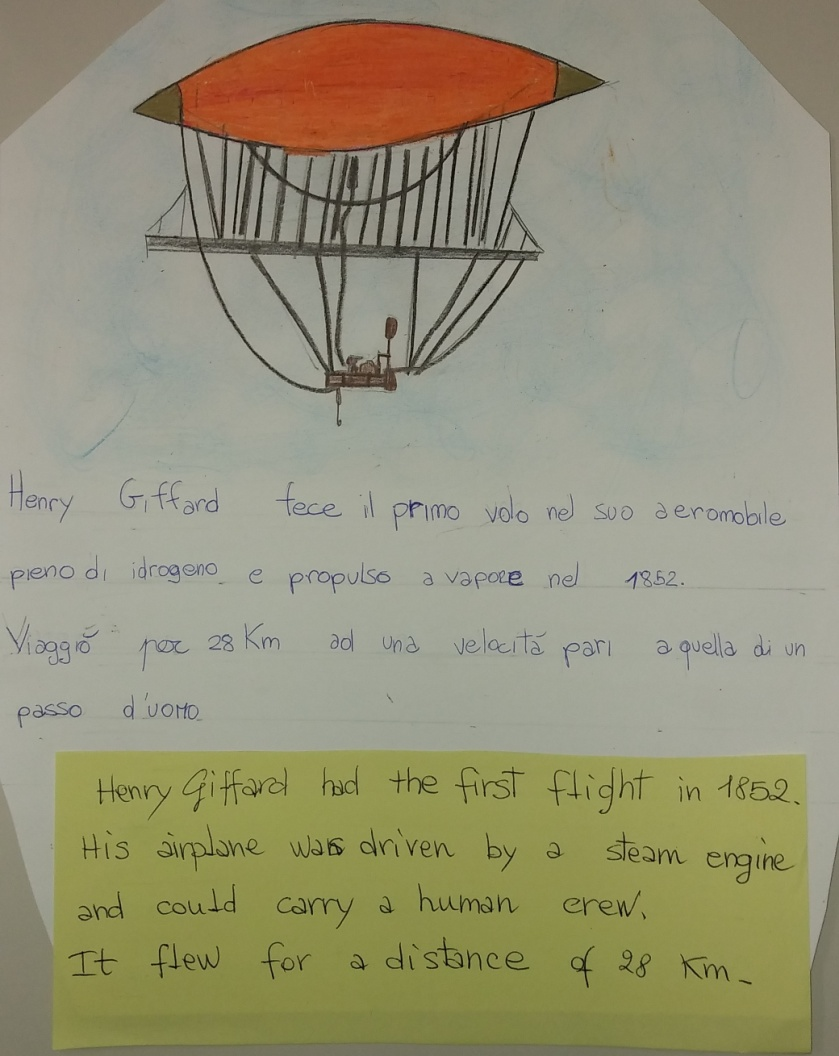 Henry Giffard fece il primo volo nel suo aeromobile
pieno di idrogeno e propulso a vapore nel 1852.
Viaggiò per 28 Km ad una velocitá pari a quella di un
passo d'uomo
Henry Giffard had the first flight in 1852.
His airplane was driven by a steam engine
and could carry a human crew.
It flew for a distance of 28 Km-